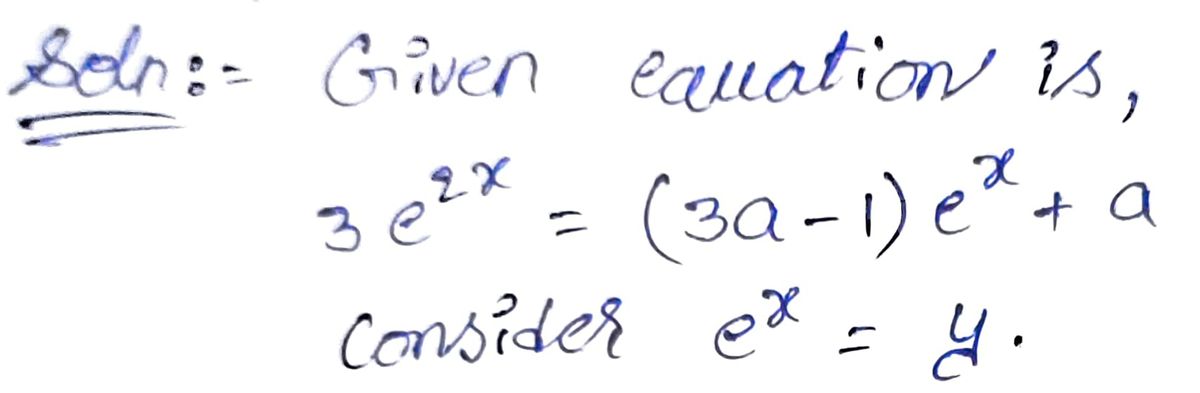 Soln:- Given equation is,
3e^{2x} = (3a-1)e^x + a
consider e^x = y.